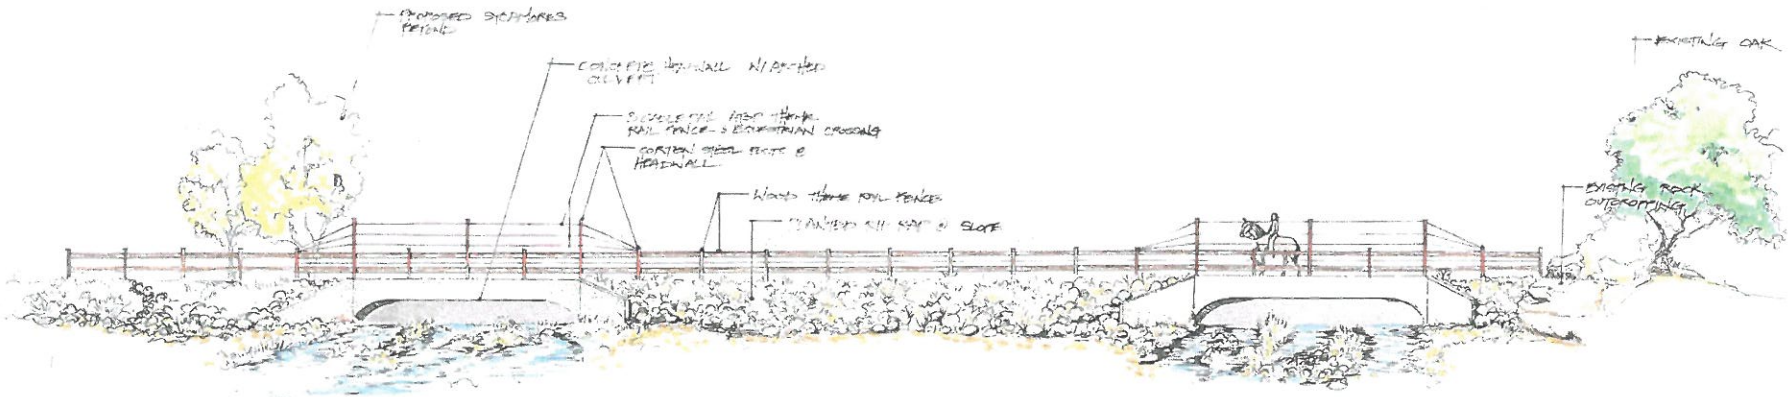 PROPOSED SYCAMORES
BEYOND
CONCRETE HEADWALL W/ ARCHED
CULVERT
RAIL FENCE @ EQUESTRIAN CROSSING
CORTEN STEEL POSTS @
HEADWALL
WOOD THEME RAIL FENCE
PLANTED RIP RAP @ SLOPE
EXISTING OAK
EXISTING ROCK
OUTCROPPING